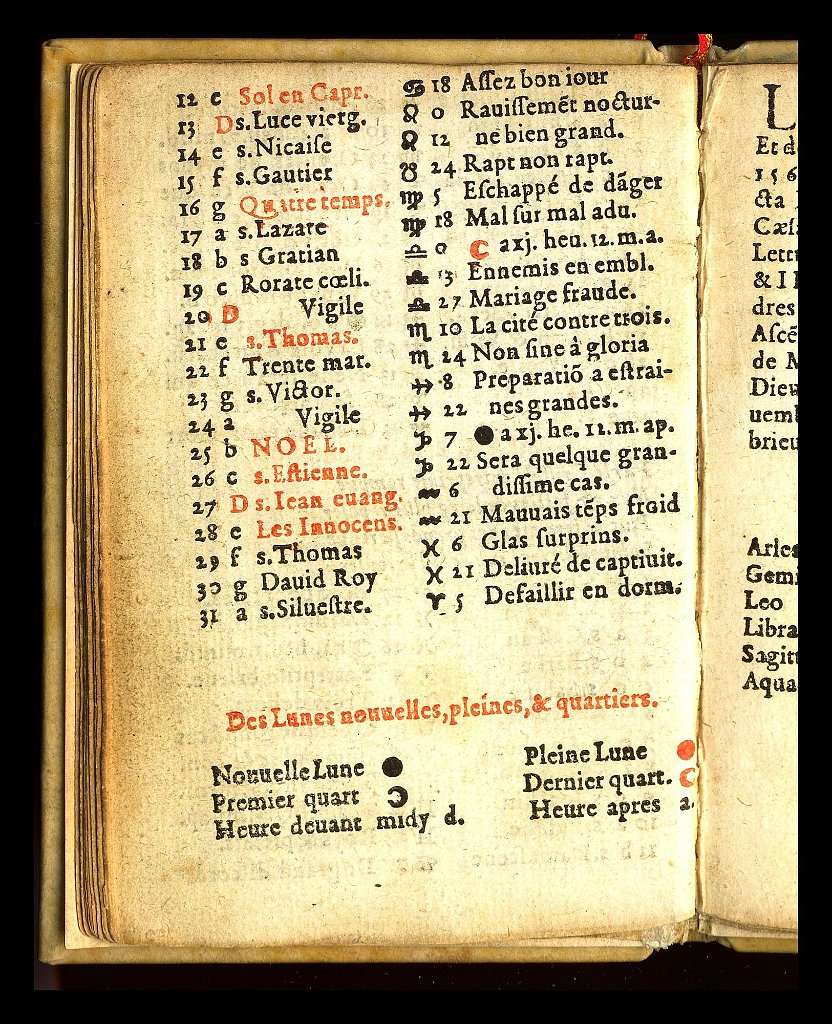 12 e Sol en Capr. ♋ 18 Aſſez bon iour
13 D s.Luce vierg. ♌ 0 Rauiſſemēt noctur-
14 e s.Nicaiſe ♌ 12 ne bien grand.
15 f s.Gautier ♉ 24 Rapt non rapt.
16 g Quatre temps. ♍ 5 Eſchappé de dãger
17 a s.Lazare ♍ 18 Mal ſur mal adu.
18 b s Gratian ♎ 0 ☾ a xj. heu. 12. m. a.
19 c Rorate cœli. ♎ 13 Ennemis en embl.
20 D Vigile ♎ 27 Mariage fraude.
21 e s.Thomas. ♏ 10 La cité contre trois.
22 f Trente mar. ♏ 24 Non ſine à gloria
23 g s.Victor. ♐ 8 Preparatiõ a eſtrai-
24 a Vigile ♐ 22 nes grandes.
25 b NOEL. ♑ 7 ● a xj. he. 11. m. ap.
26 c s.Eſtienne. ♑ 22 Sera quelque gran-
27 D s.Iean euang. ♒ 6 diſſime cas.
28 e Les Innocens. ♒ 21 Mauuais tēps froid
29 f s.Thomas ♓ 6 Glas ſurprins.
30 g Dauid Roy ♓ 21 Deliuré de captiuit.
31 a s.Silueſtre. ♈ 5 Defaillir en dorm.
Des Lunes nouuelles, pleines, & quartiers.
Nouuelle Lune ● Pleine Lune ●
Premier quart ☽ Dernier quart. ☾
Heure deuant midy d. Heure apres a.
L
Et d
156
cta
Cæſ.
Lettr
& I I
dres
Aſcē
de M
Dieu
uemb
brieu
Aries
Gemi
Leo
Libra
Sagitt
Aqua